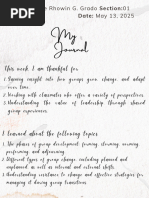 Rhowin G. Grado Section:01
Date: May 13, 2025
My
Journal
This week, I am thankful for
1. Gaining insight into how groups grow, change, and adapt
over time.
2. Working with classmates who offer a variety of perspectives.
3. Understanding the value of leadership through shared
experiences.
I learned about the following topics
1. The phases of group development: forming, storming, norming,
performing, and adjourning.
2. Different types of change, including planned and
as well as internal and external drivers.
3. Understanding resistance to change and effective strategies for
managing it during group transitions.